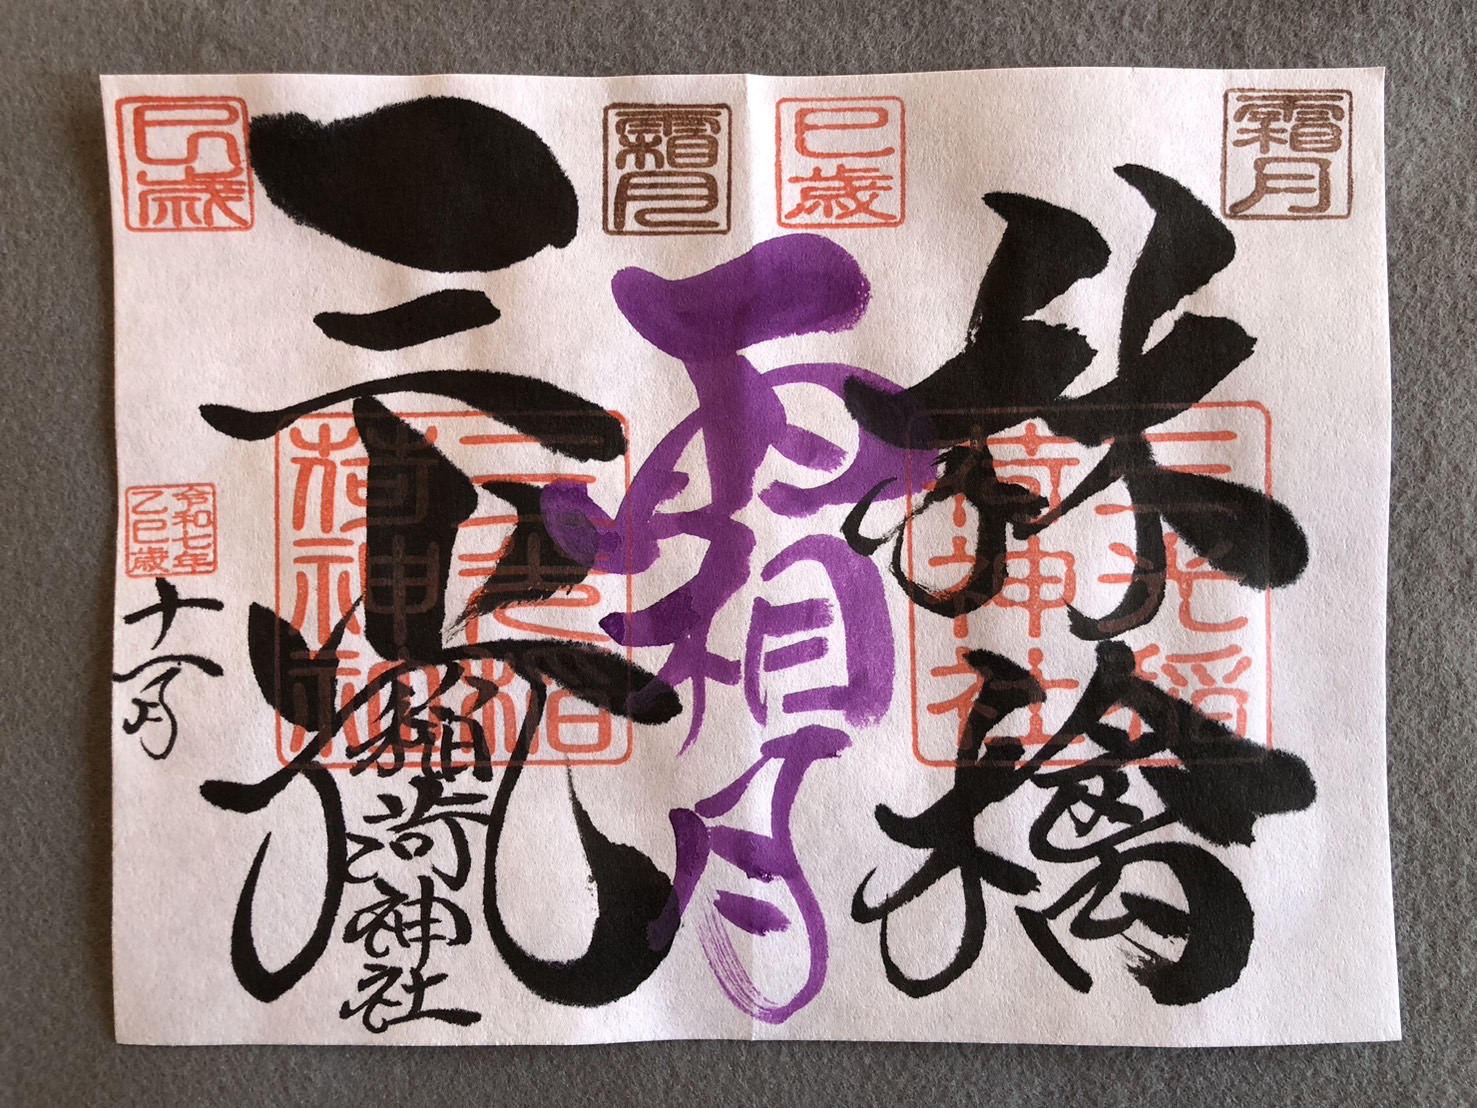 霜月
林檎
三光稲
荷神社
巳歳
霜月
霜月
三光
稲荷神社
三光稲
荷神社
巳歳
令和七年
乙巳歳
十一月